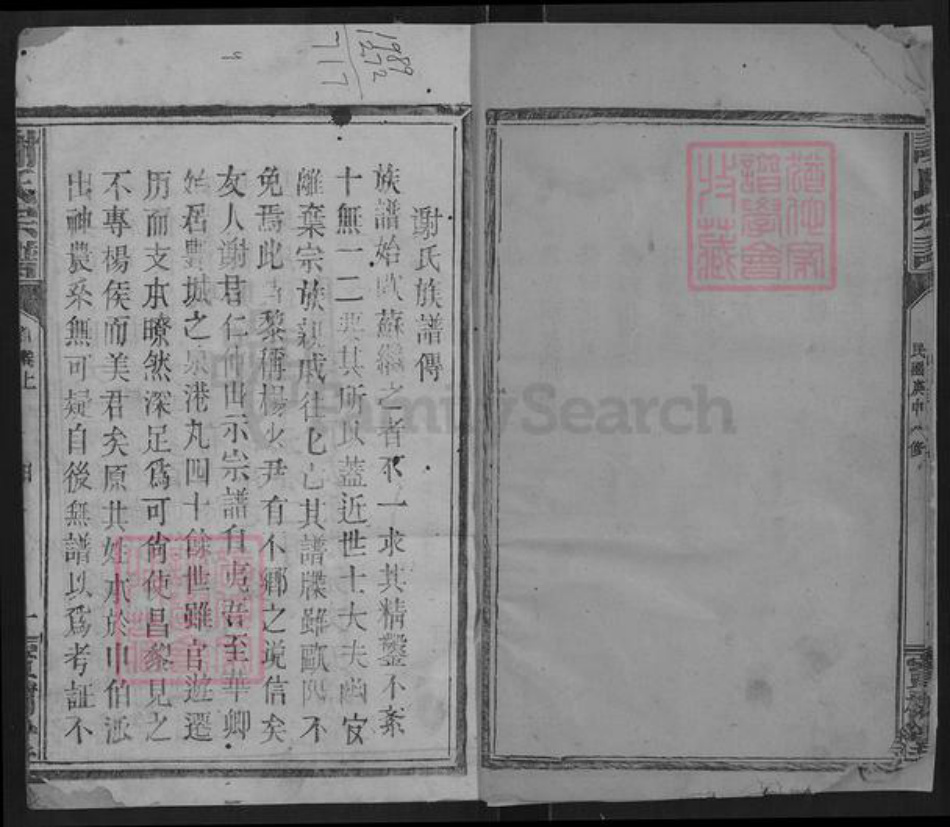 1989
1272
717
民國庚申八修
謝氏族譜傳
族譜始歐蘇繼之者不一求其精鑿不紊
十無一二要其所以蓋近世士大夫幽
離棄宗族親戚往也亡其譜牒雖歐陽不
免焉此昌黎稱楊少尹有不鄉之說信矣
友人謝君仁仲出示宗譜自夷吾至華卿
始居豐城之泉港九四十餘世雖官遊遷
历而支本瞭然深足為可尙使昌黎見之
不專楊侯而美君矣原其姓承於申伯派
出神農系無可疑自後無譜以爲考証不
謝氏宗譜
卷上
寶樹堂
FamilySearch